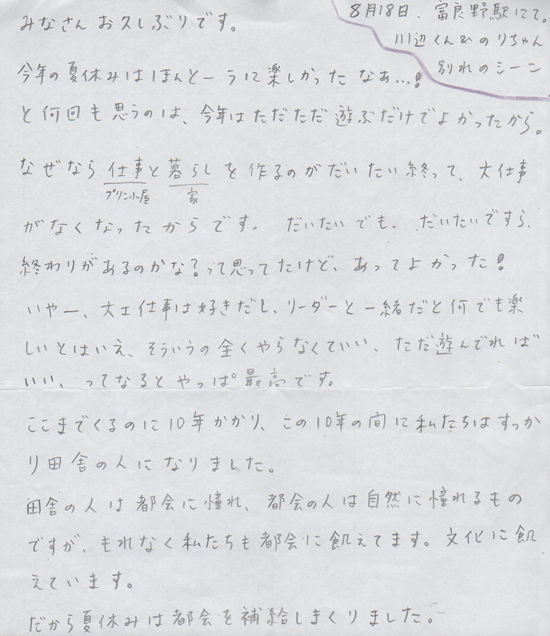 みなさん お久しぶりです。
8月18日、富良野駅にて。
川辺くん&のりちゃん
別れのシーン
今年の夏休みはほんとーうに楽しかったなあ…!
と何回も思うのは、今年はただただ遊ぶだけでよかったから。
なぜなら 仕事と暮らしを作るのがだいたい終って、大仕事
プリン小屋 家
がなくなったからです。 だいたいでも、だいたいですら、
終わりがあるのかな?って思ってたけど、あってよかった!
いやー、大工仕事は好きだし、リーダーと一緒だと何でも楽
しいとはいえ、そういうの全くやらなくていい、ただ遊んでれば
いい、ってなるとやっぱ最高です。
ここまでくるのに10年かかり、この10年の間に私たちはすっか
り田舎の人になりました。
田舎の人は都会に憧れ、都会の人は自然に憧れるもの
ですが、もれなく私たちも都会に飢えてます。文化に飢
えています。
だから夏休みは都会を補給しまくりました。